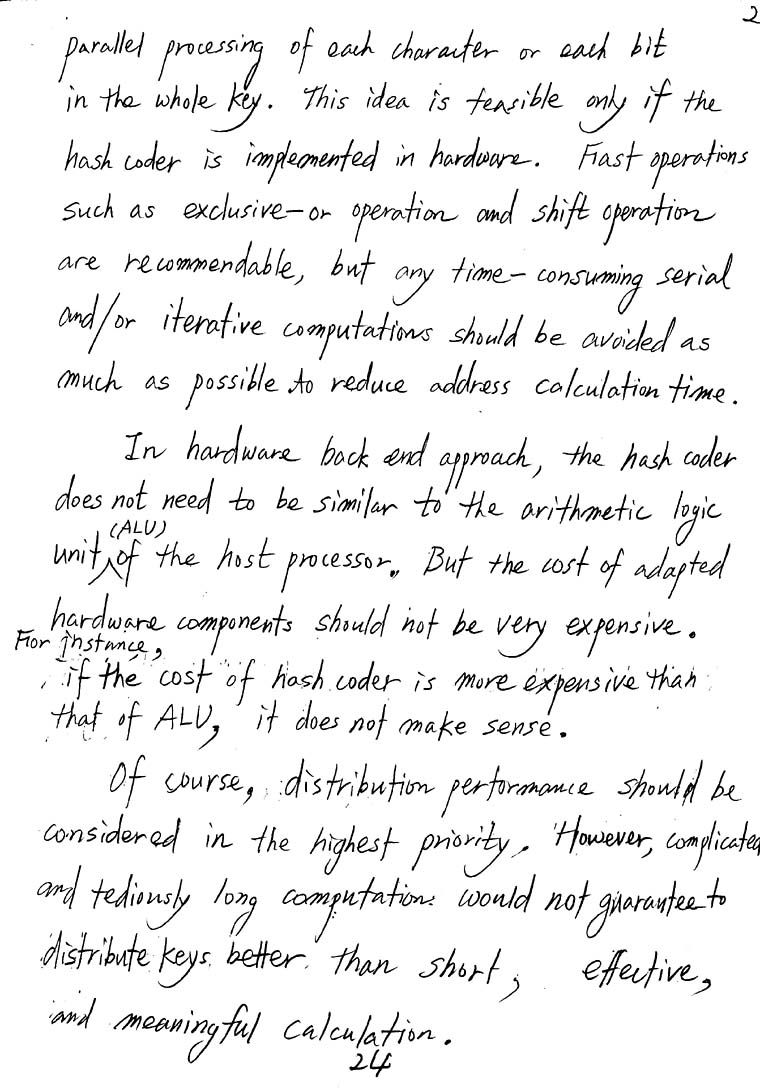 2
parallel processing of each character or each bit
in the whole key. This idea is feasible only if the
hash coder is implemented in hardware. Fast operations
such as exclusive-or operation and shift operation
are recommendable, but any time-consuming serial
and/or iterative computations should be avoided as
much as possible to reduce address calculation time.
In hardware back end approach, the hash coder
does not need to be similar to the arithmetic logic
(ALU)
unit of the host processor. But the cost of adapted
hardware components should not be very expensive.
For instance,
if the cost of hash coder is more expensive than
that of ALU, it does not make sense.
Of course, distribution performance should be
considered in the highest priority. However, complicated
and tediously long computation would not guarantee to
distribute keys better than short, effective,
and meaningful calculation.
24